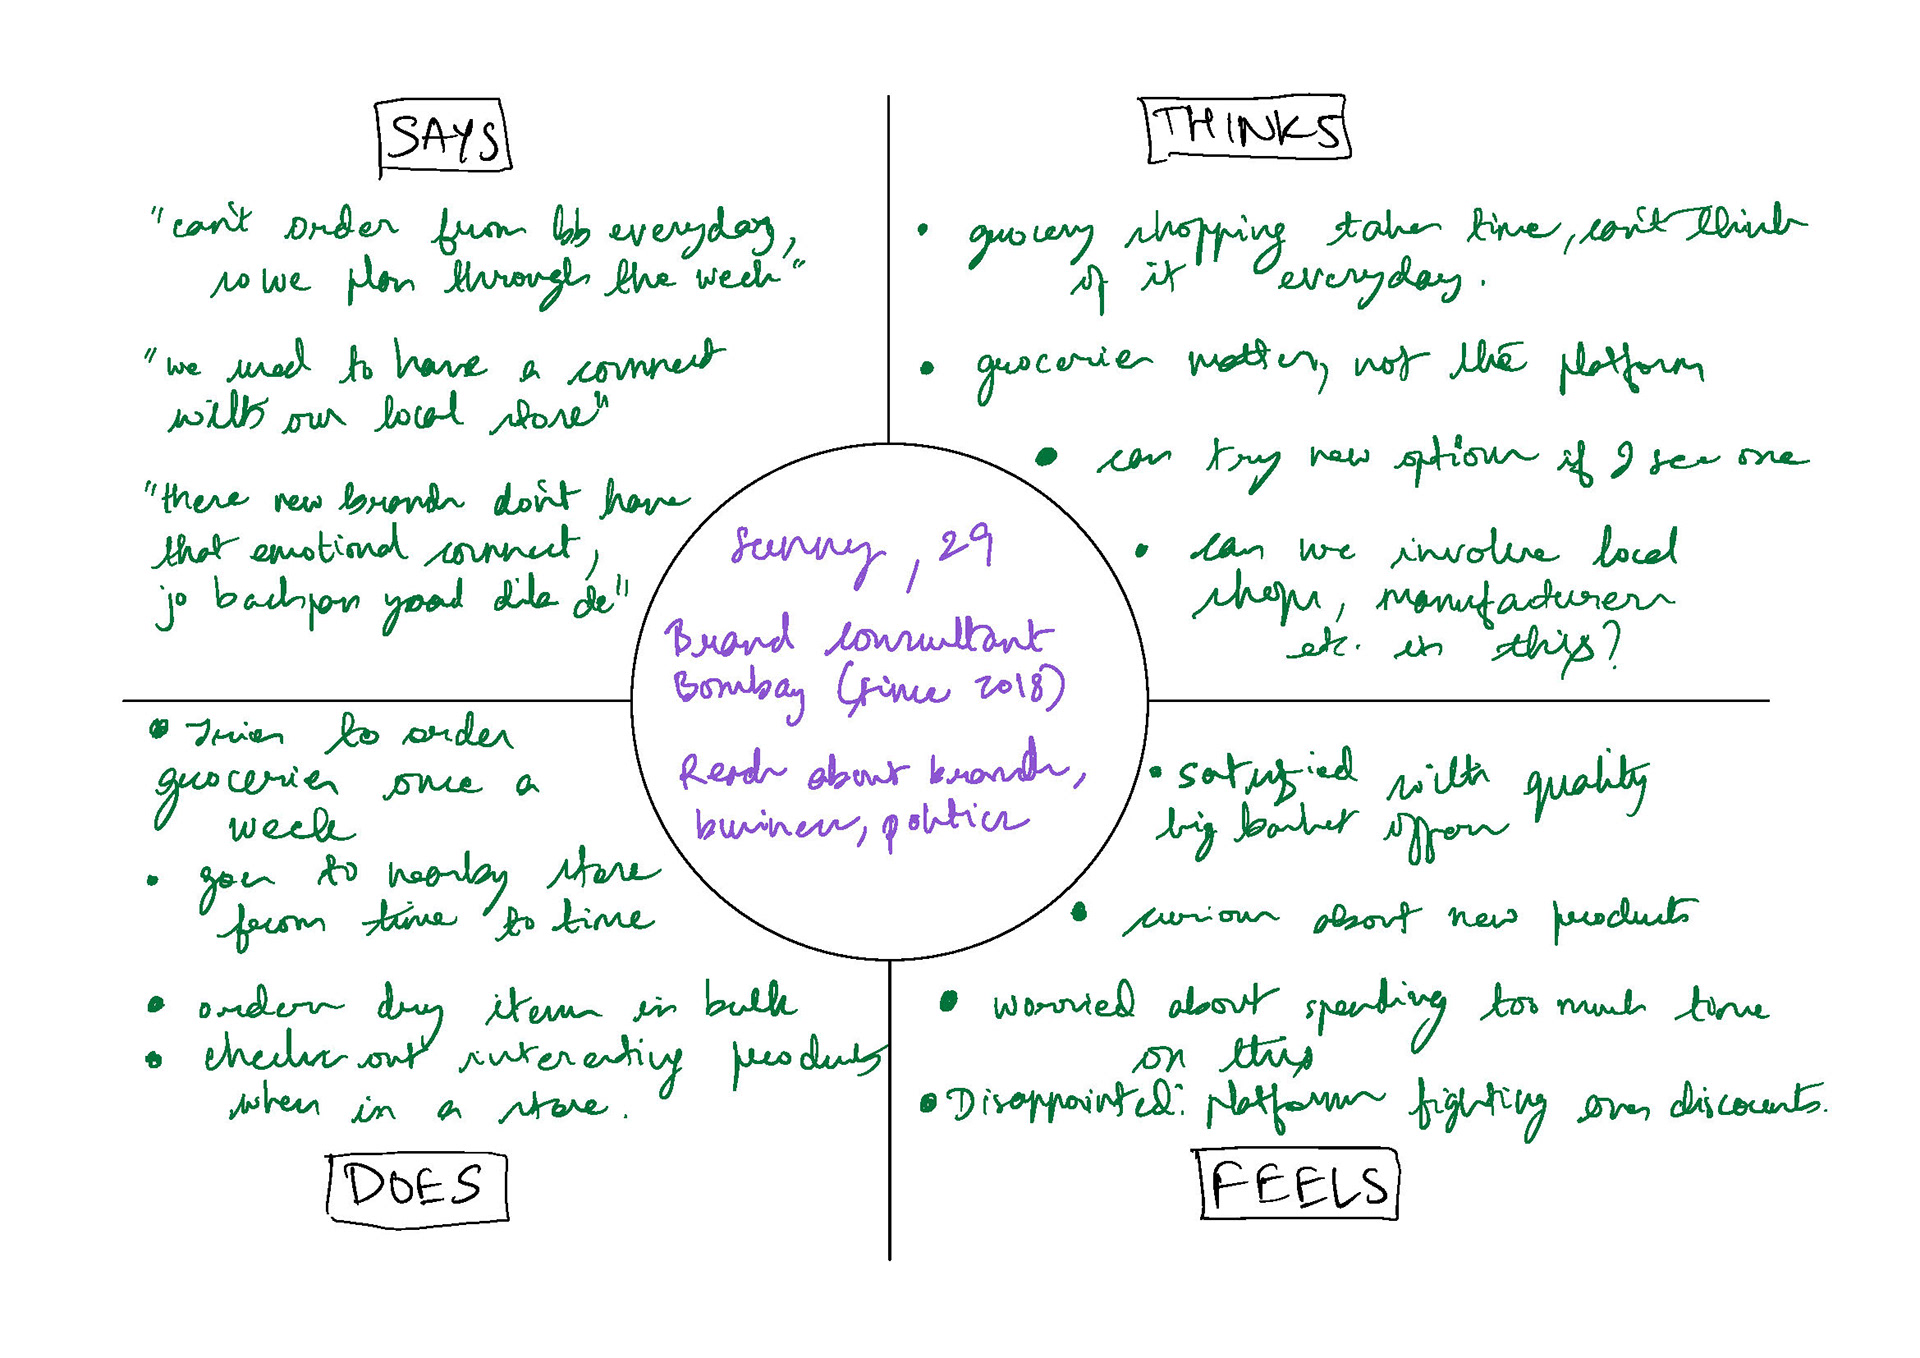 SAYS
"can't order from bb everyday,
so we plan through the week"
"we used to have a connect
with our local store"
"these new brands don't have
that emotional connect,
jo bachpan yaad dila de"
THINKS
• grocery shopping takes time, can't think
of it everyday.
• groceries matter, not the platform
• can try new options if I see one
• can we involve local
shops, manufacturers
etc. in this?
Sunny, 29
Brand consultant
Bombay (since 2018)
Reads about brands,
business, politics
• Tries to order
groceries once a
week
• goes to nearby store
from time to time
• orders dry items in bulk
• checks out interesting products
when in a store.
DOES
• satisfied with quality
big basket offers
• curious about new products
• worried about spending too much time
on this
• Disappointed: platforms fighting over discounts.
FEELS